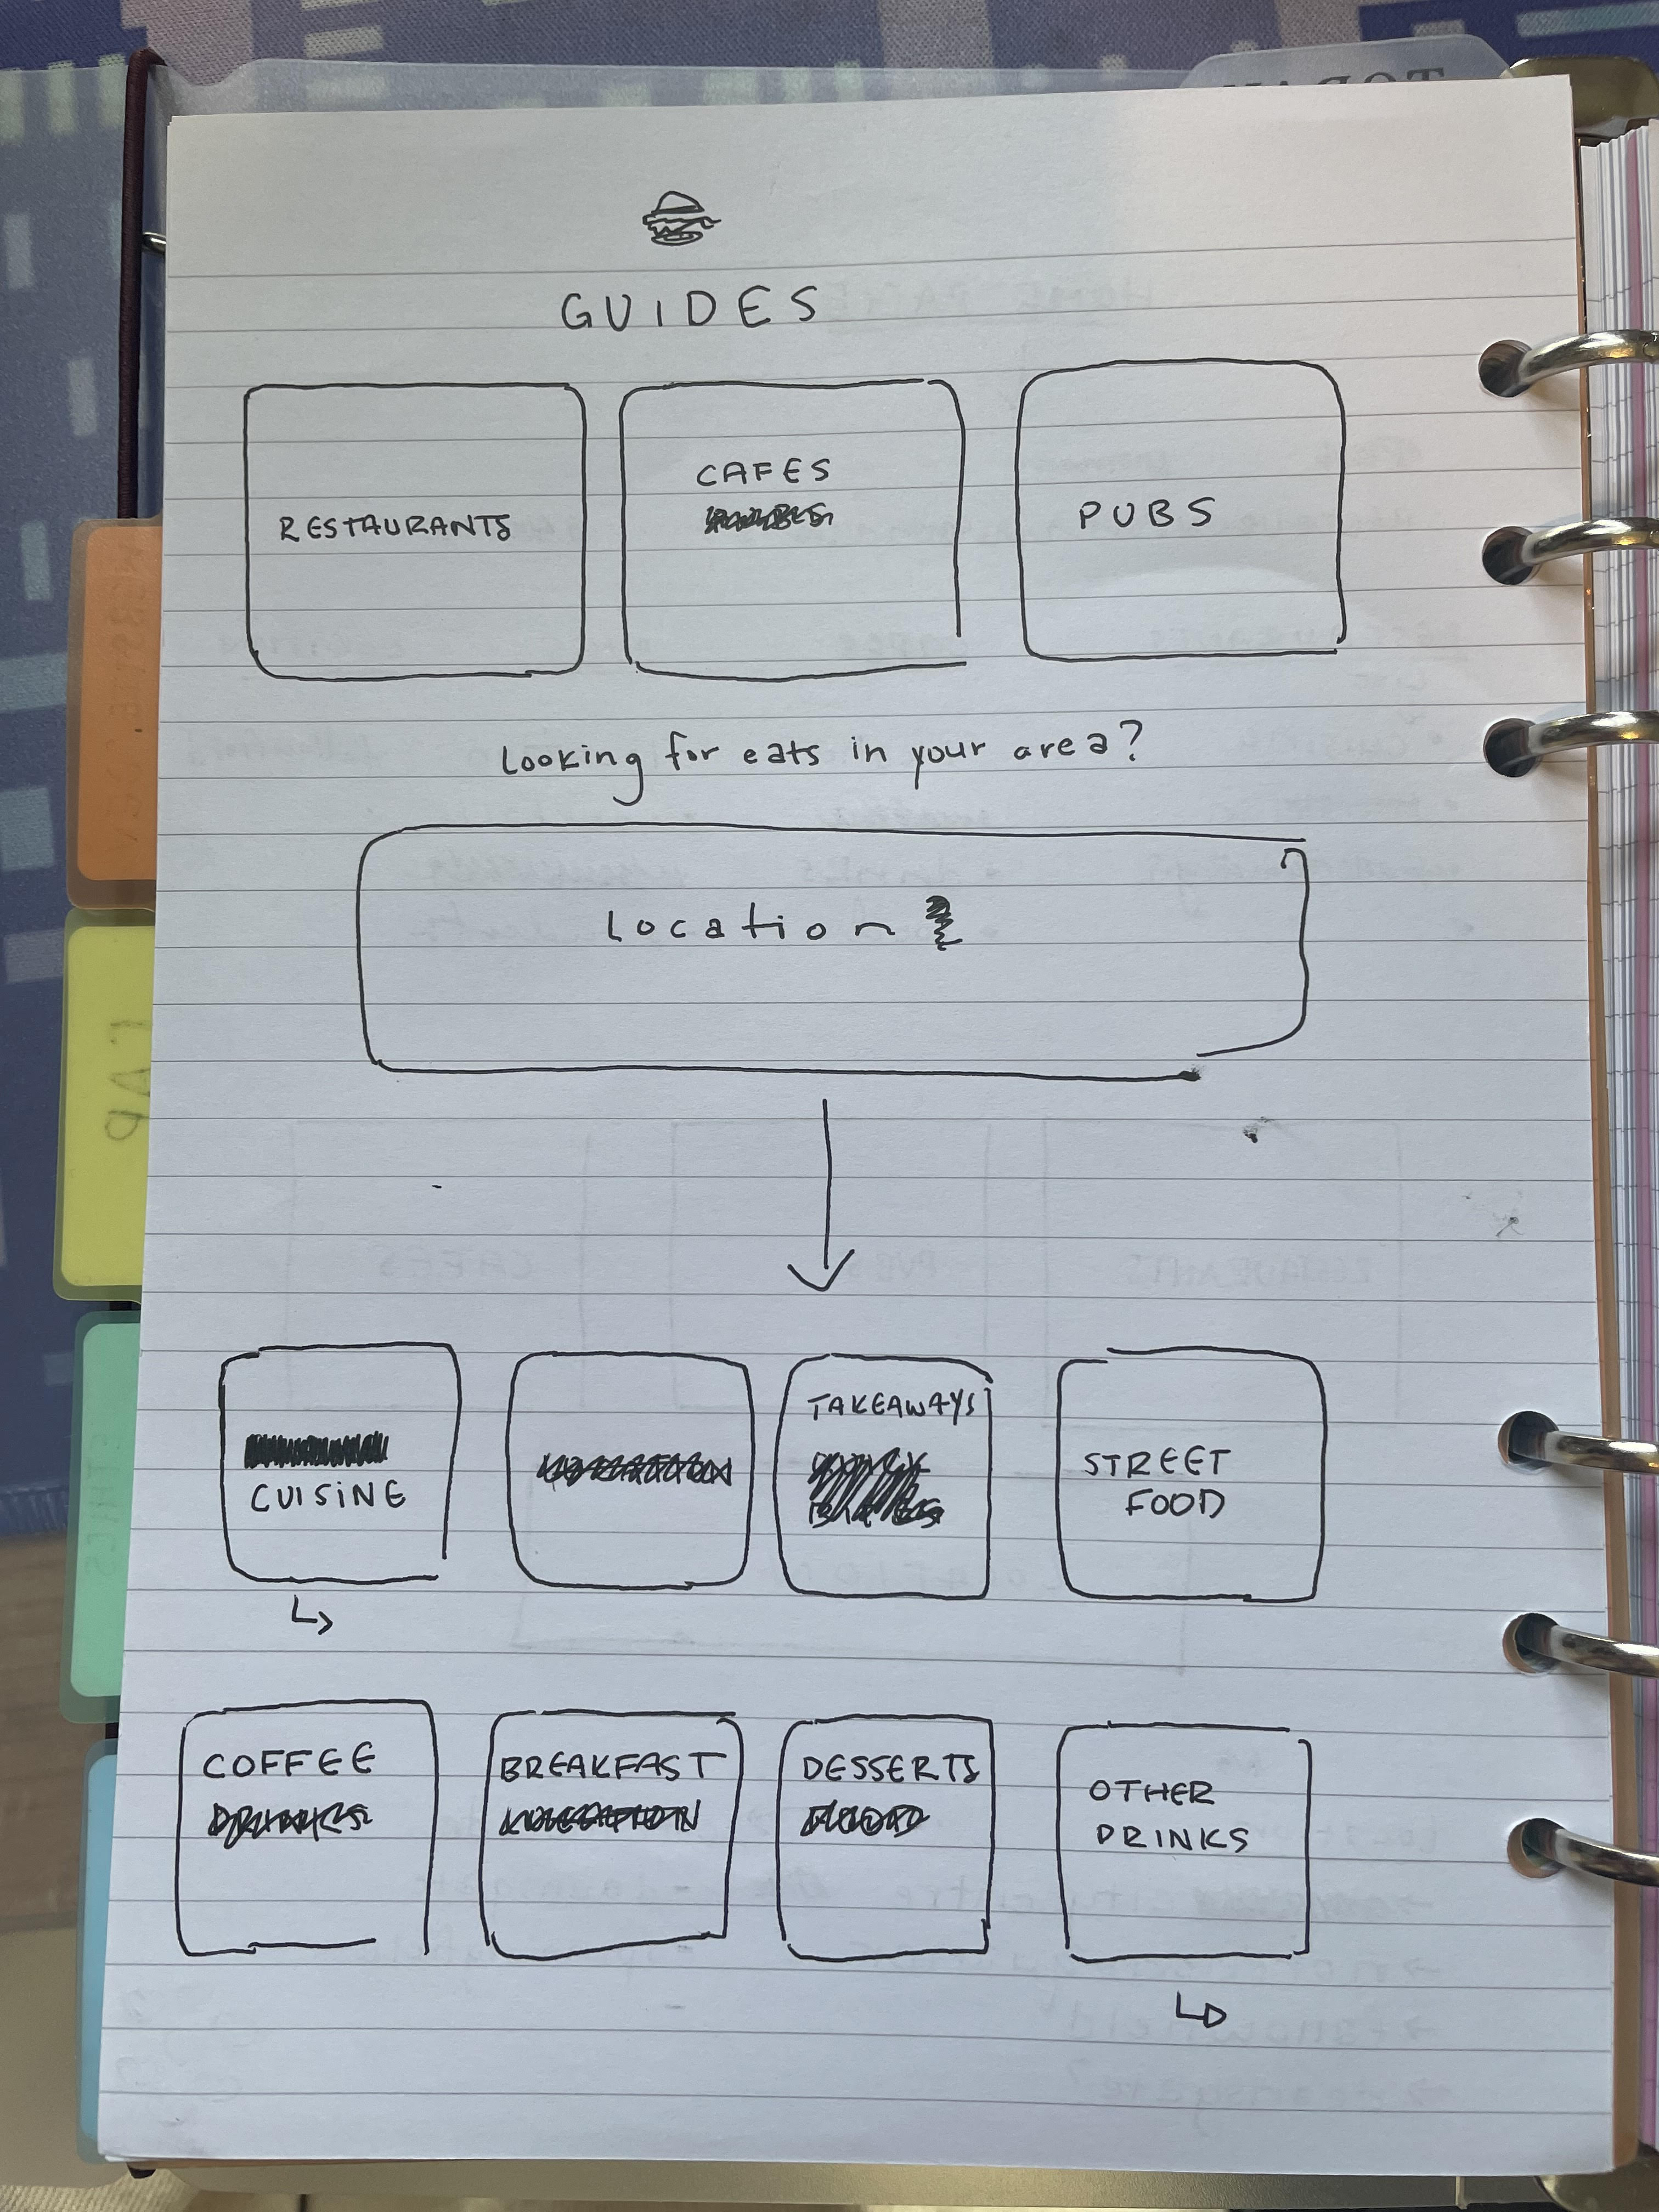 GUIDES
RESTAURANTS
CAFES
PUBS
Looking for eats in your area?
Location
CUISINE
TAKEAWAYS
STREET
FOOD
COFFEE
BREAKFAST
DESSERTS
OTHER
DRINKS